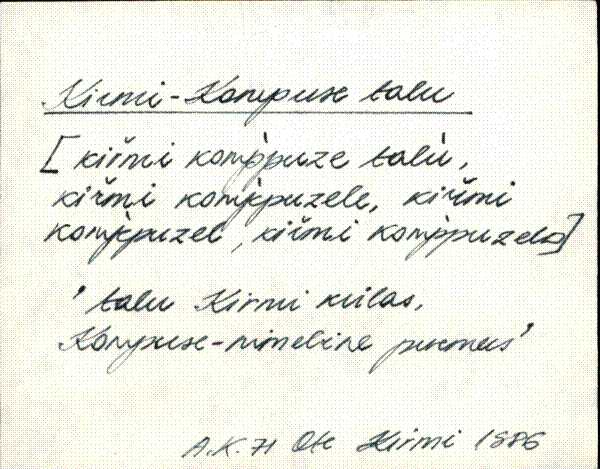 Kirmi-Kompuse talu
[kiŕmi komp̀puze talu,
kiŕmi komp̀puzele, kiŕmi
komp̀puzel, kiŕmi komp̀puzela]
' talu Kirmi külas,
Kompuse-nimeline
A.K. 71 Ote Kirmi 1986